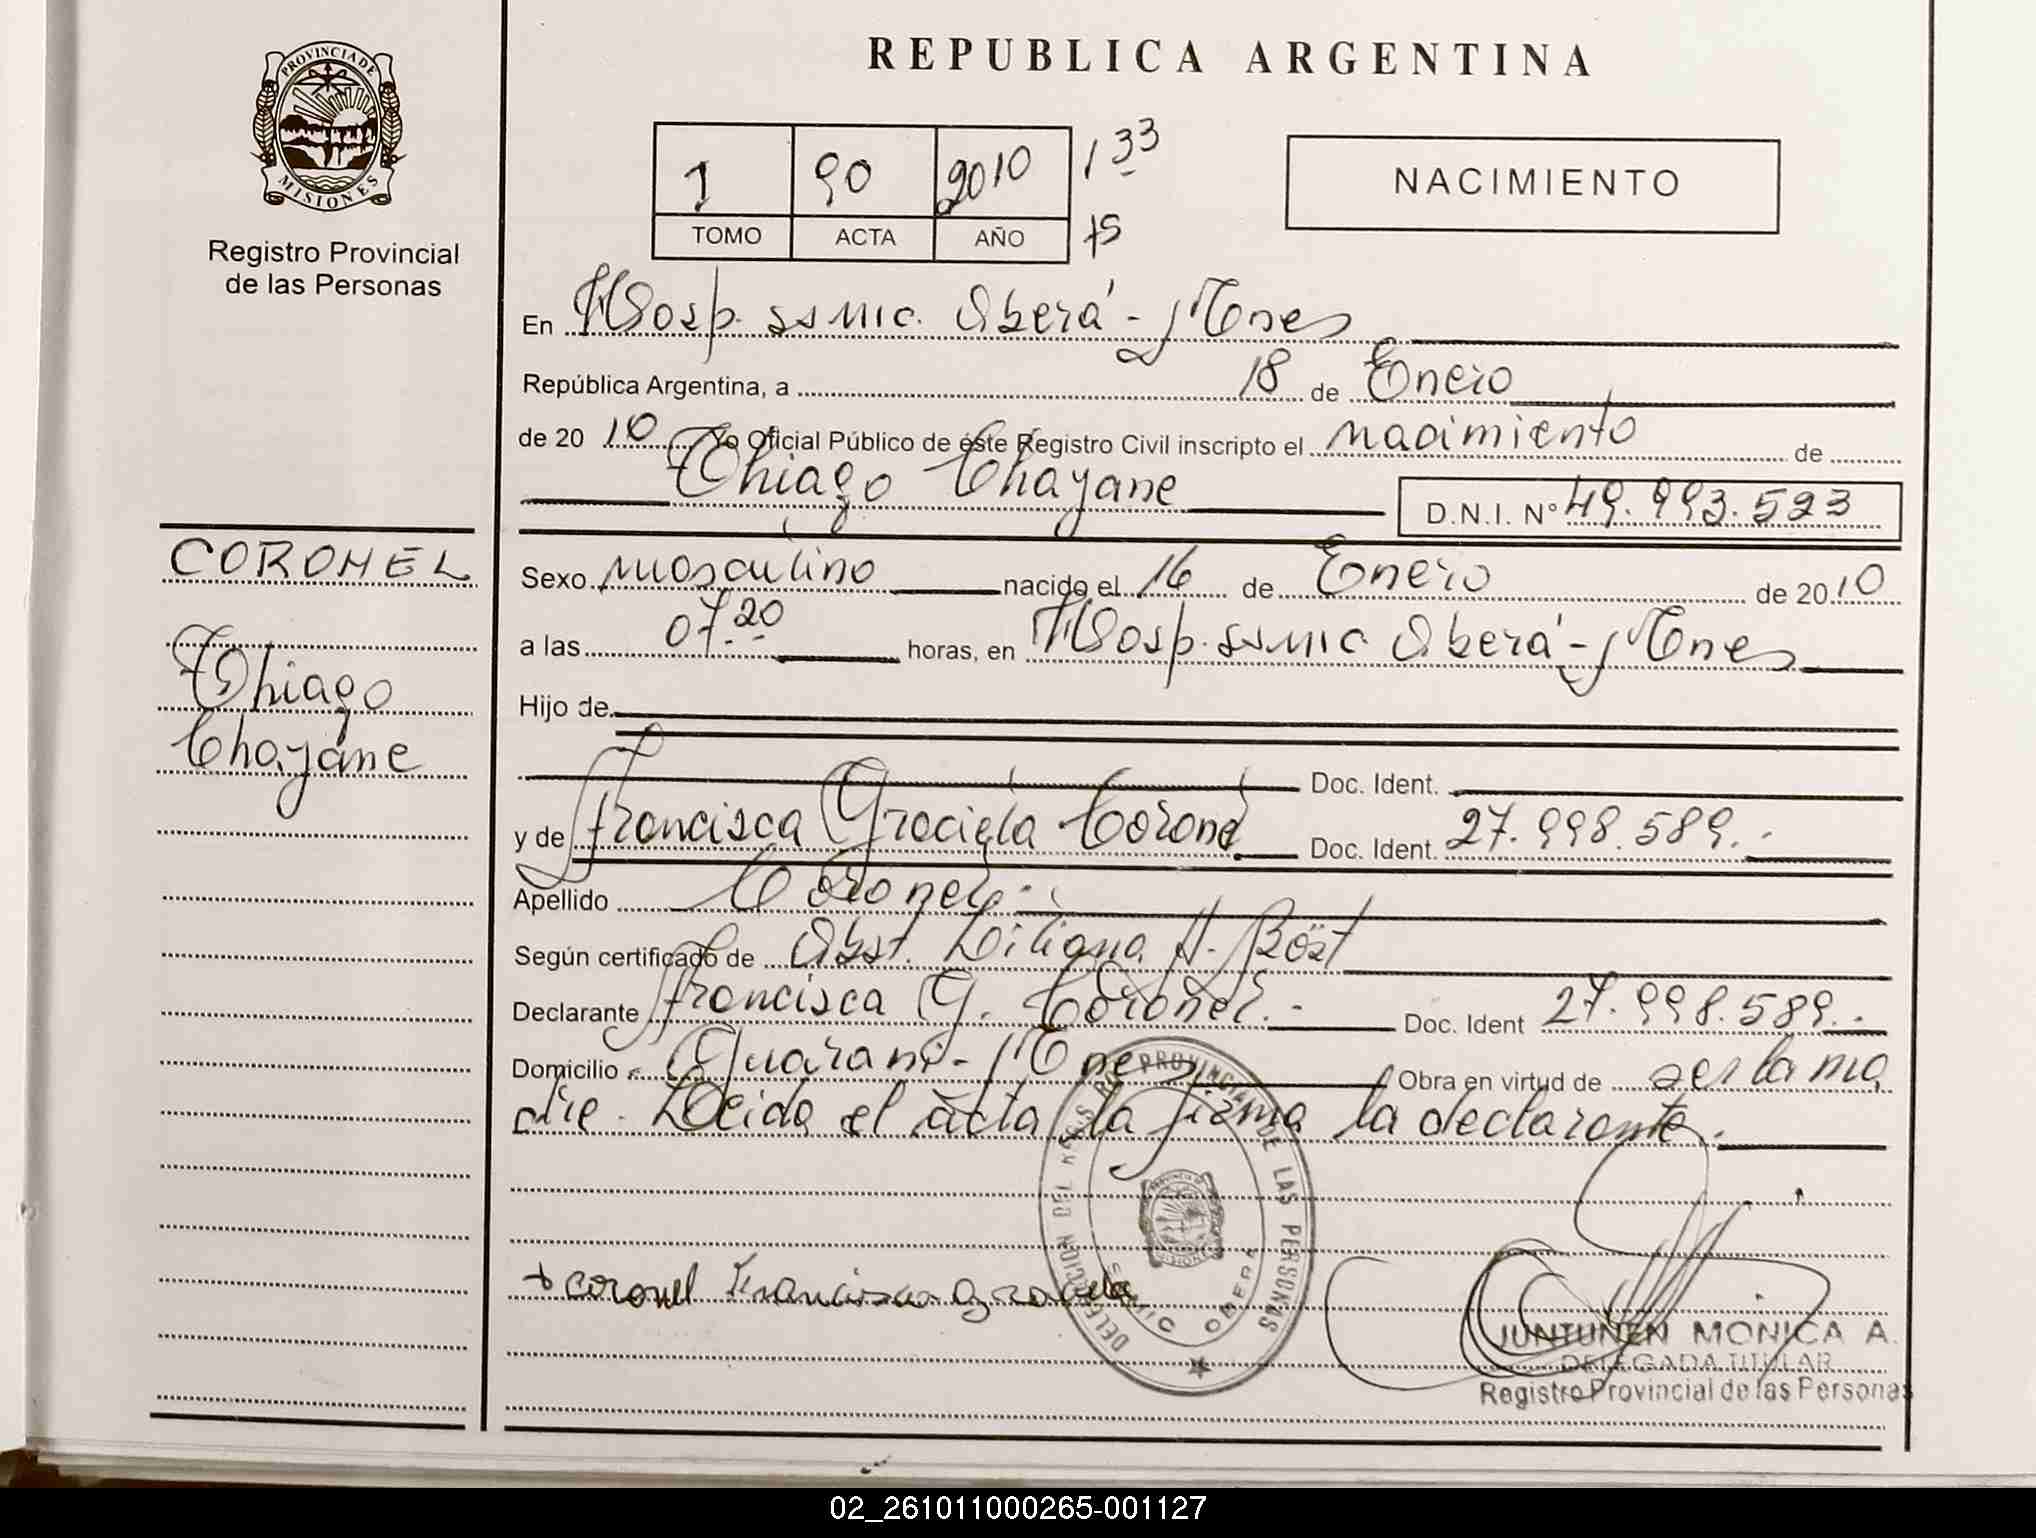 PROVINCIA DE
MISIONES
Registro Provincial
de las Personas
REPUBLICA ARGENTINA
1 90 2010 133
TOMO ACTA AÑO 75
NACIMIENTO
En Hosp. ssmic. Oberá - Mnes
República Argentina, a 18 de Enero
de 20 10 Yo Oficial Público de éste Registro Civil inscripto el nacimiento de
Thiago Chayane D.N.I. N° 49.993.523
CORONEL
Thiago
Chayane
Sexo masculino nacido el 16 de Enero de 2010
a las 07.20 horas, en Hosp. ssmic Oberá - Mnes
Hijo de
Doc. Ident.
y de Francisca Graciela Coronel Doc. Ident. 27.998.589.-
Apellido Coronel.-
Según certificado de Obst. Liliana H. Böst
Declarante Francisca G. Coronel.- Doc. Ident 27.998.589.-
Domicilio Guaraní - Mnes Obra en virtud de ser la ma
dre. Leida el acta la firma la declarante.
DELEGACION DEL REGISTRO PROVINCIAL DE LAS PERSONAS
OBERA
MISIONES
+ coronel Francisca graciela
JUNTUNEN MONICA A.
DELEGADA TITULAR
Registro Provincial de las Personas
02_261011000265-001127